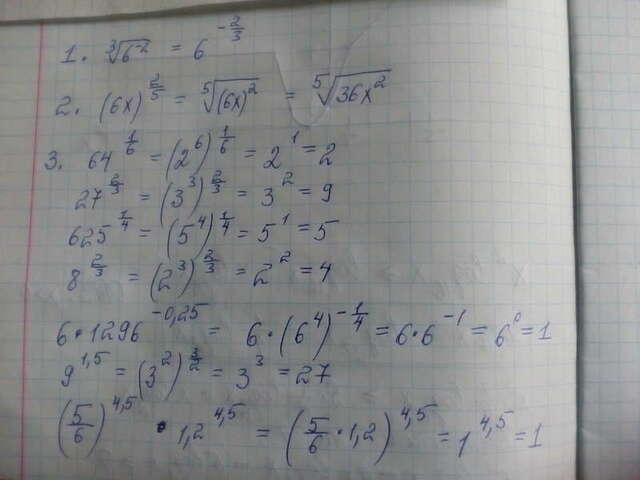 1. ∛(6⁻²) = 6^(-2/3)
2. (6x)^(2/5) = ⁵√((6x)²) = ⁵√(36x²)
3. 64^(1/6) = (2⁶)^(1/6) = 2¹ = 2
27^(2/3) = (3³)^(2/3) = 3² = 9
625^(1/4) = (5⁴)^(1/4) = 5¹ = 5
8^(2/3) = (2³)^(2/3) = 2² = 4
6 · 1296^(-0,25) = 6 · (6⁴)^(-1/4) = 6 · 6⁻¹ = 6⁰ = 1
9^(1,5) = (3²)^(3/2) = 3³ = 27
(5/6)^(4,5) · 1,2^(4,5) = (5/6 · 1,2)^(4,5) = 1^(4,5) = 1